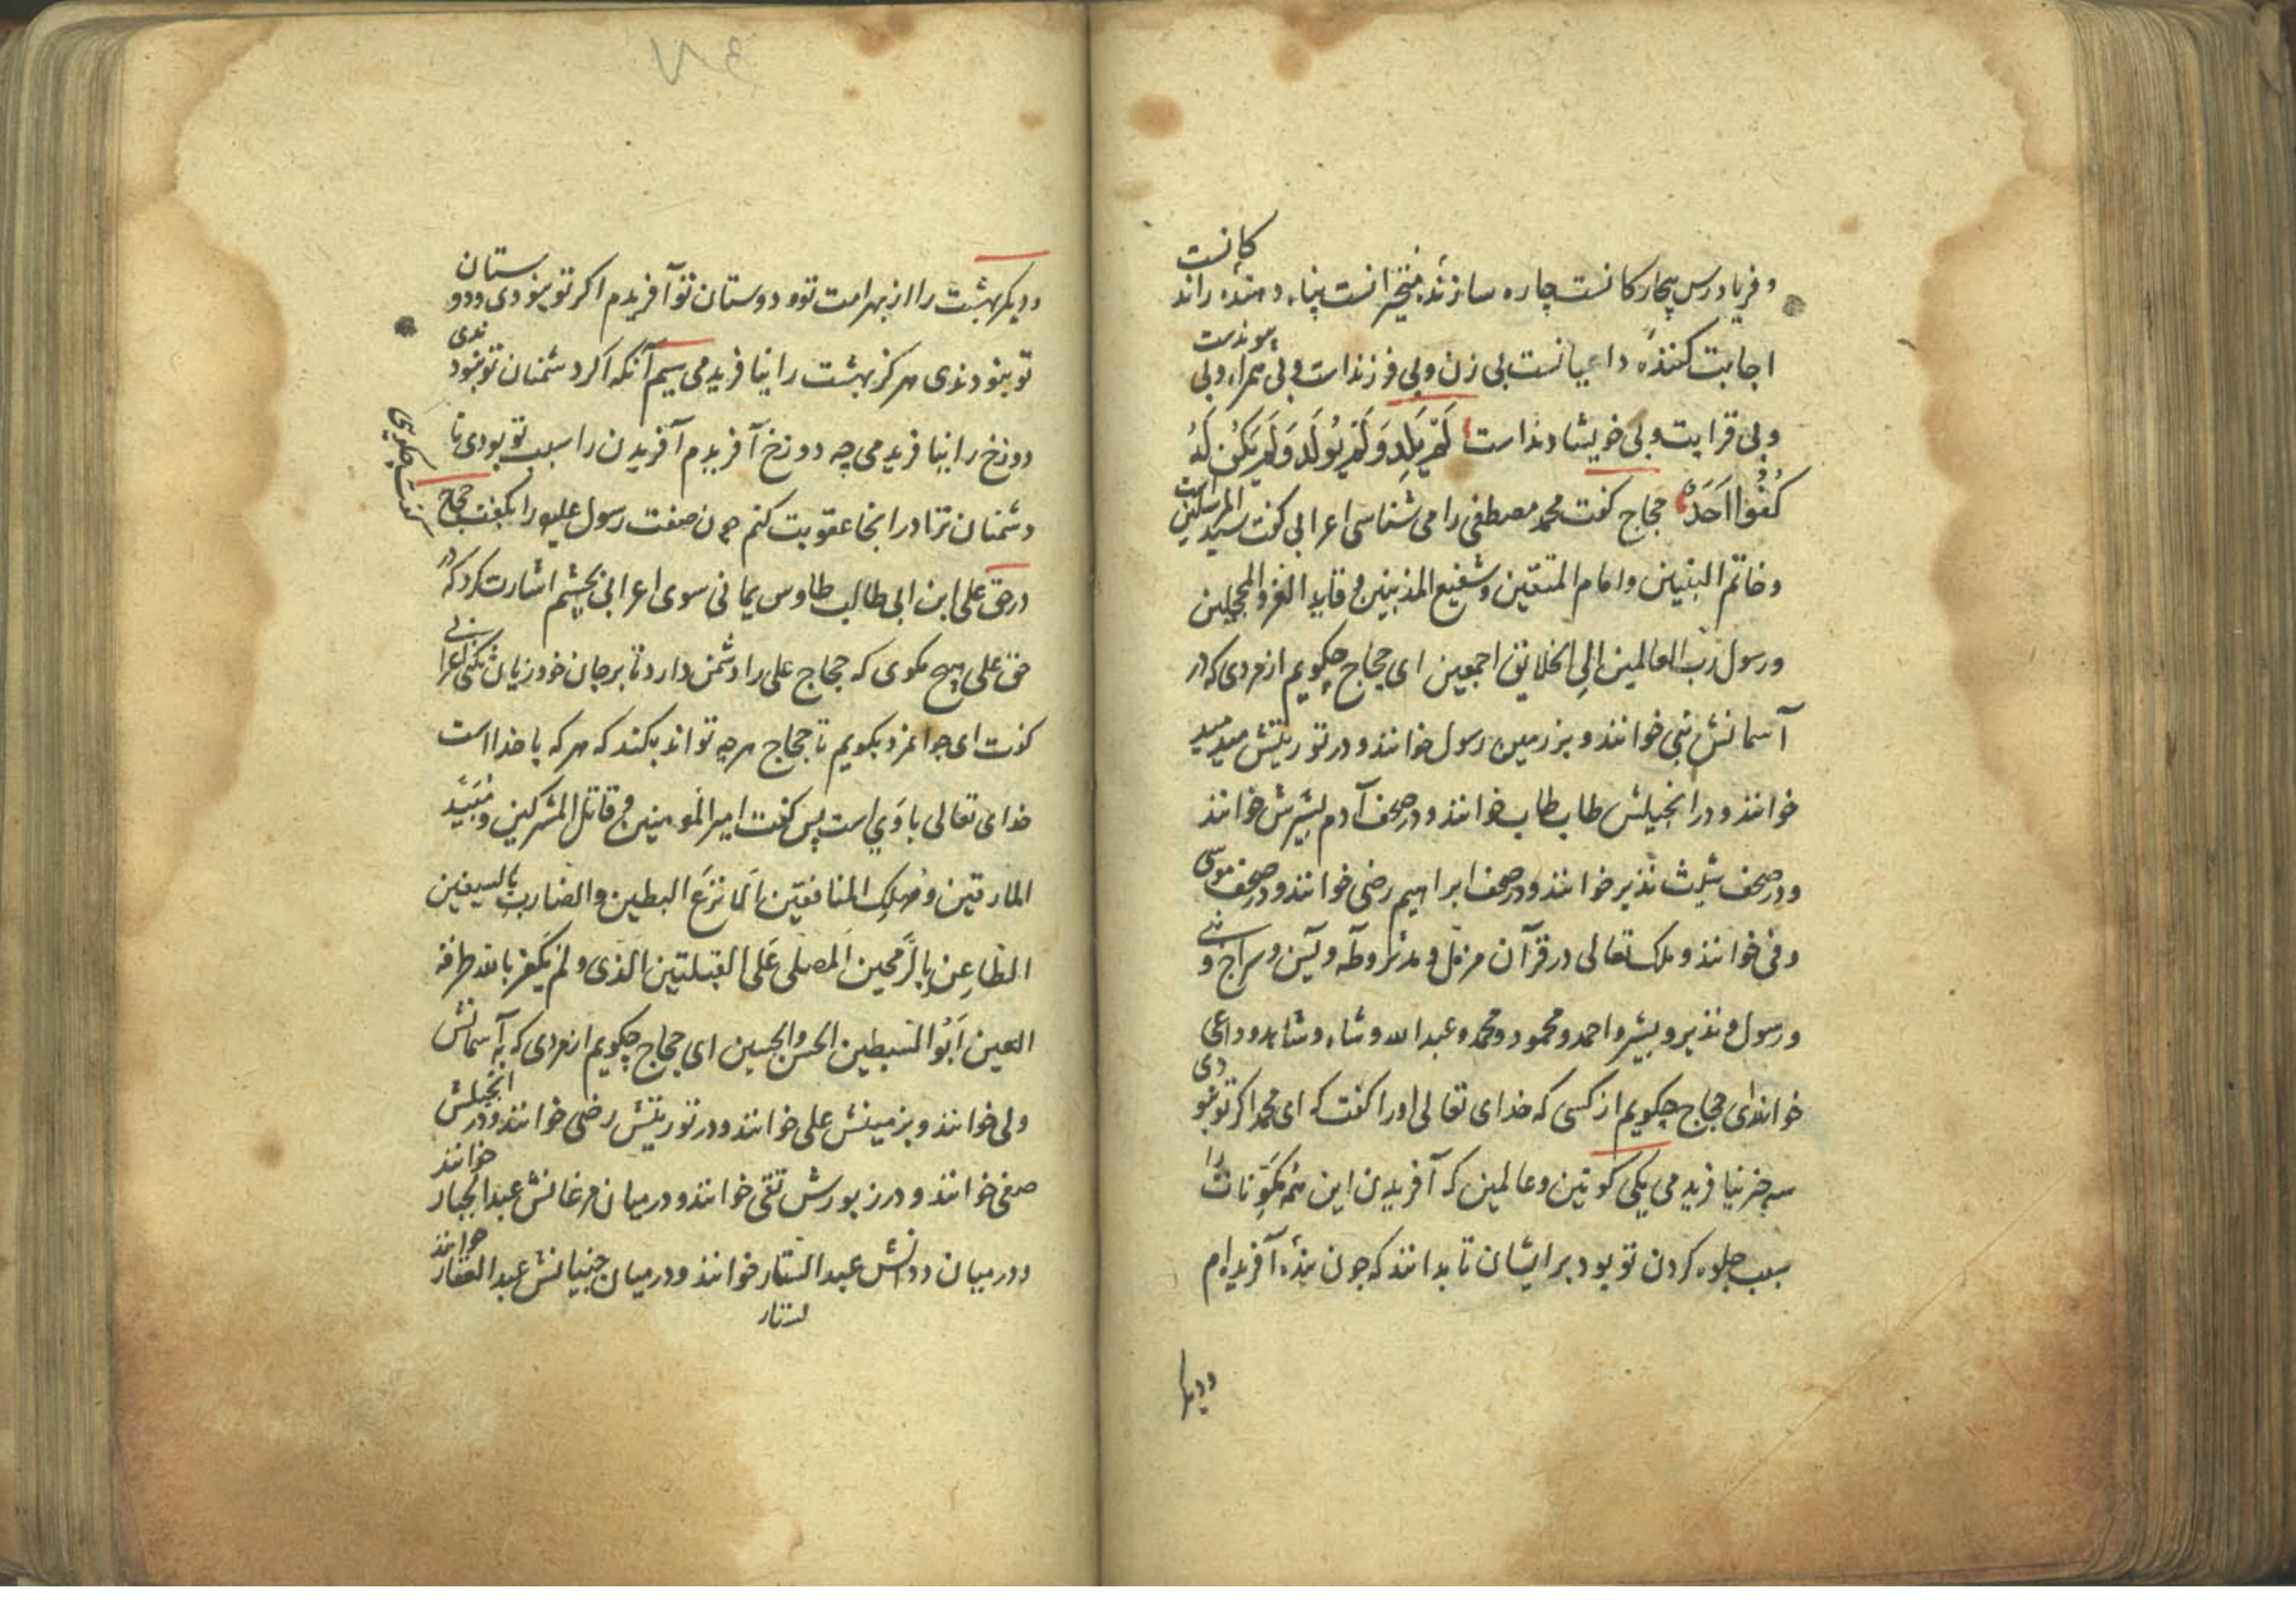 و فریادرس بیچارکانست چاره سازندهٔ متحیرانست پناه دهنده راند
کانست
اجابت کننده داعیانست بی زن و بی فرزندست و بی همراه و بی
پیوندست
و بی قرابت و بی خویشاوندست لَمْ یَلِدْ وَلَمْ یُولَدْ وَلَمْ یَکُنْ لَهُ
کُفُوًا اَحَدٌ حجاج کفت محمد مصطفی را می شناسی اعرابی کفت سید المرسلین
است
و خاتم النبیین و امام المتقین و شفیع المذنبین و قاید الغر المحجلین
و رسول رب العالمین الی الخلایق اجمعین ای حجاج چکویم از مردی که در
آسمانش نبی خوانند و بر زمین رسول خوانند و در توریتش مید مید
خوانند و در انجیلش طاب طاب خوانند و در صحف آدم بشیرش خوانند
و در صحف شیث نذیر خوانند و در صحف ابراهیم رضی خوانند و در صحف موسی
وفی خوانند و ملک تعالی در قرآن مزمل و مدثر و طه و یس و سراج و
و رسول و نذیر و بشیر و احمد و محمود و محمد و عبدالله و شاه و شاهد و داعی
خوانند ای حجاج چکویم از کسی که خدای تعالی او را کفت که ای محمد اکر تو نبو
دی
سه چیز نیافریدمی یکی کونین و عالمین که آفریدن این همه مکونات
را
سبب جلوه کردن تو بود بر ایشان تا بدانند که چون بنده آفریده ام
و دیکر
و دیکر بهشت را از بهر امت تو و دوستان تو آفریدم اکر تو نبودی و دو
ستان
تو نبودندی هرکز بهشت را نیافریدمی سیم آنکه اکر دشمنان تو نبود
ندی
دوزخ را نیافریدمی چه دوزخ آفریدم آفریدن را سبب تو بودی تا
دشمنان ترا در انجا عقوبت کنم چون صفت رسول علیه را بکفت حجاج
کفت چکویی
در حق علی ابن ابی طالب طاوس یمانی سوی اعرابی بچشم اشارت کرد که در
حق علی هیچ مکوی که حجاج علی را دشمن دارد تا بر جان خود زیان نکنی اعرا
بی
کفت ای جوانمرد بکویم تا حجاج هرچه تواند بکند که هرکه با خداست
خدای تعالی با وی است پس کفت امیر المومنین و قاتل المشرکین و مُبَیِّد
المارقین و مهلک المنافقین الانزع البطین و الضارب بالسیفین
الطاعن بالرمحین المصلی علی القبلتین الذی و لم یکفر بالله طرفة
العین ابو السبطین الحسن و الحسین ای حجاج چکویم از مردی که به آسمانش
ولی خوانند و بزمینش علی خوانند و در توریتش رضی خوانند و در انجیلش
صفی خوانند و در زبورش تقی خوانند و در میان مرغانش عبدالجبار
خوانند
و در میان ددانش عبدالستار خوانند و در میان جنیانش عبدالغفار
خوانند
لستار